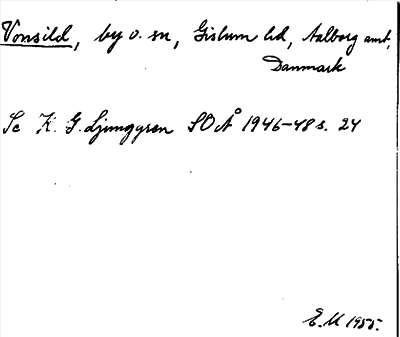 Vonsild, by o. sn, Gislum hd, Aalborg amt,
Danmark
Se K. G. Ljunggren SOÅ 1946-48 s. 24
E. M 1955.